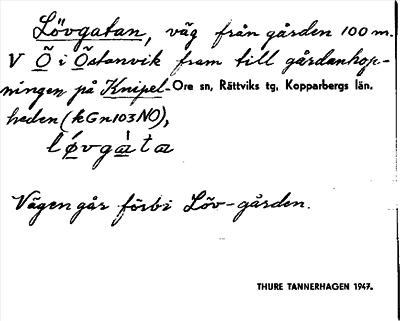 Lövgatan, väg från gården 100 m.
V Ö i Östanvik fram till gårdanhop-
ningen på Knipel- Ore sn, Rättviks tg, Kopparbergs län.
heden (kGn103NO),
lǿvgàta
Vägen går förbi Löv-gården.
THURE TANNERHAGEN 1947.